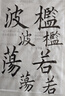 檻檻若若
波波蕩蕩